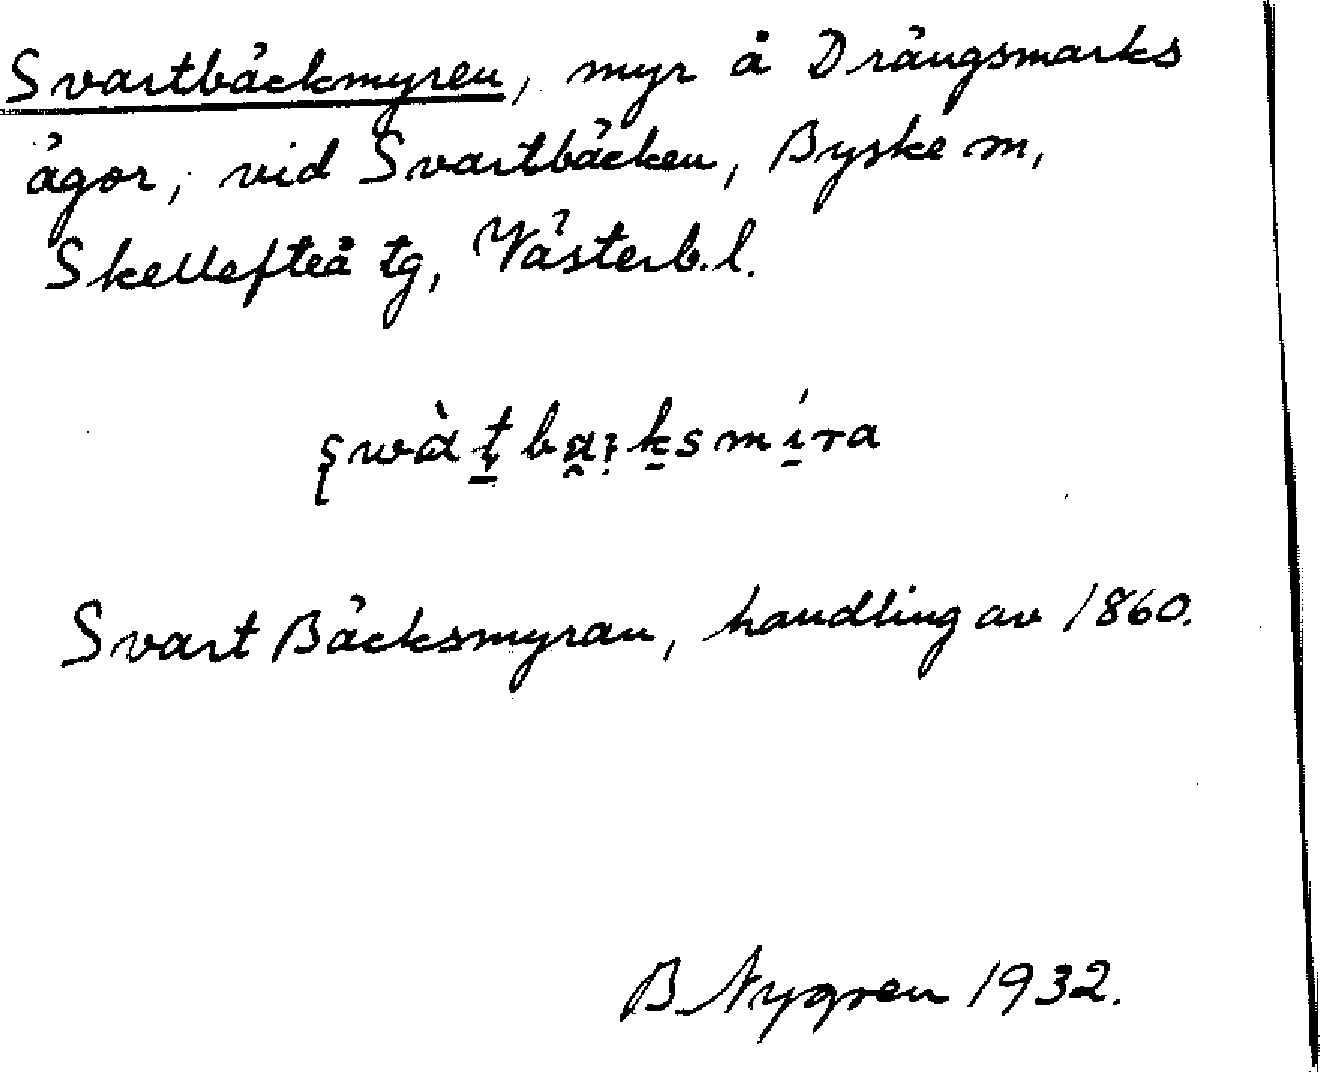 Svartbäckmyren, myr å Drängsmarks
ägor, vid Svartbäcken, Byske sn,
Skellefteå tg, Västerb.l.
Svart Bäcksmyran, handling av 1860.
B. Nygren 1932.